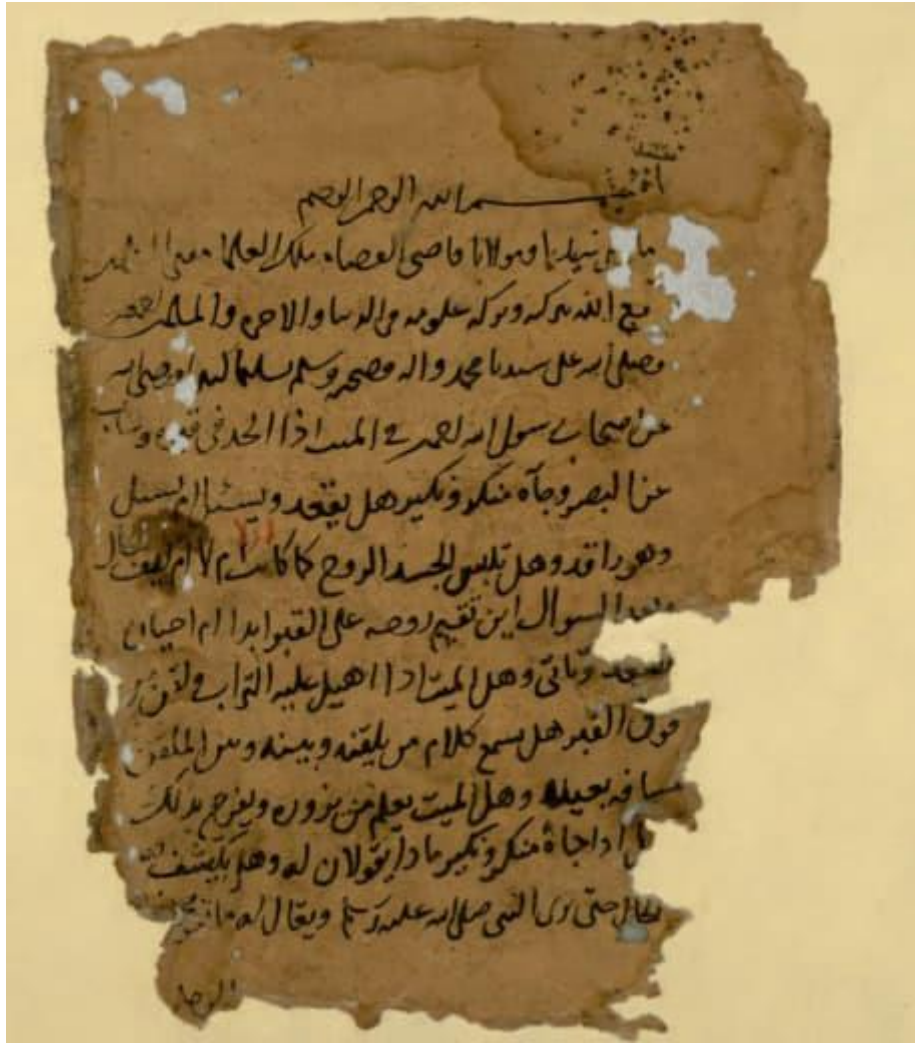 بسم الله الرحمن الرحيم
سيدنا ومولانا قاضي القضاة ملك العلماء
الله ببركته وبركة علومه في الدنيا والاخره والمسلمين
وصلى الله على سيدنا محمد واله وصحبه وسلم تسليما
عن اصحاب رسول الله في الميت اذا الحد في قبره
عن البصر وجآه منكر ونكير هل يقعد ويسئل ام يسئل
وهو راقد وهل تلبس الجسد الروح كما كانت ام لا ام كيف الحال
وبعد السوال اين تقيم روحه على القبر ابدا ام احيانا
وتاتي وهل الميت اذا اهيل عليه التراب
فوق القبر هل يسمع كلام من يلقنه وبينه وبين الملقن
مسافه بعيده وهل الميت يعلم من يزوره ويفرح بذلك
اذا جاه منكر ونكير ماذا يقولان له وهل يكشف
حتى يرى النبي صلى الله عليه وسلم ويقال له ما
الرجل